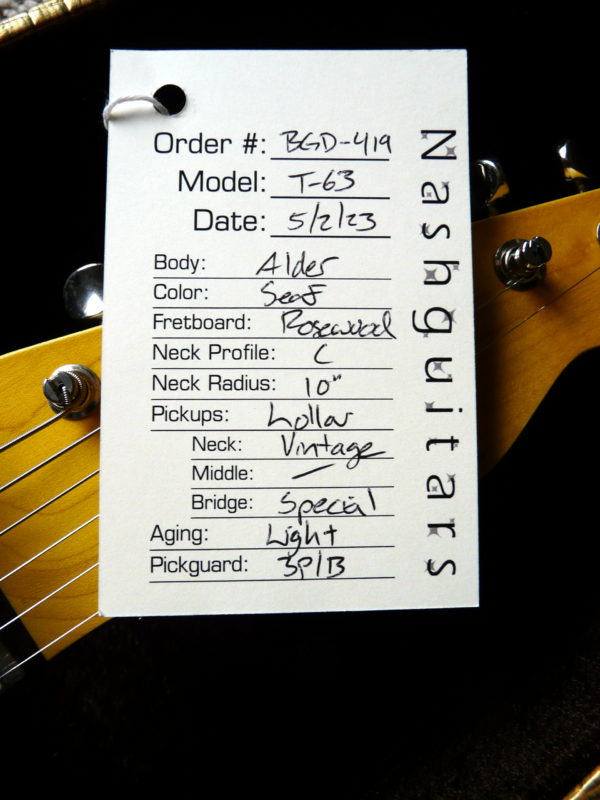 Order #: BGD-419
Model: T-63
Date: 5/2/23
Body: Alder
Color:
Fretboard: Rosewood
Neck Profile: C
Neck Radius: 10"
Pickups: Lollar
Neck: Vintage
Middle: —
Bridge: Special
Aging: Light
Pickguard: 3P/B
Nashguitars